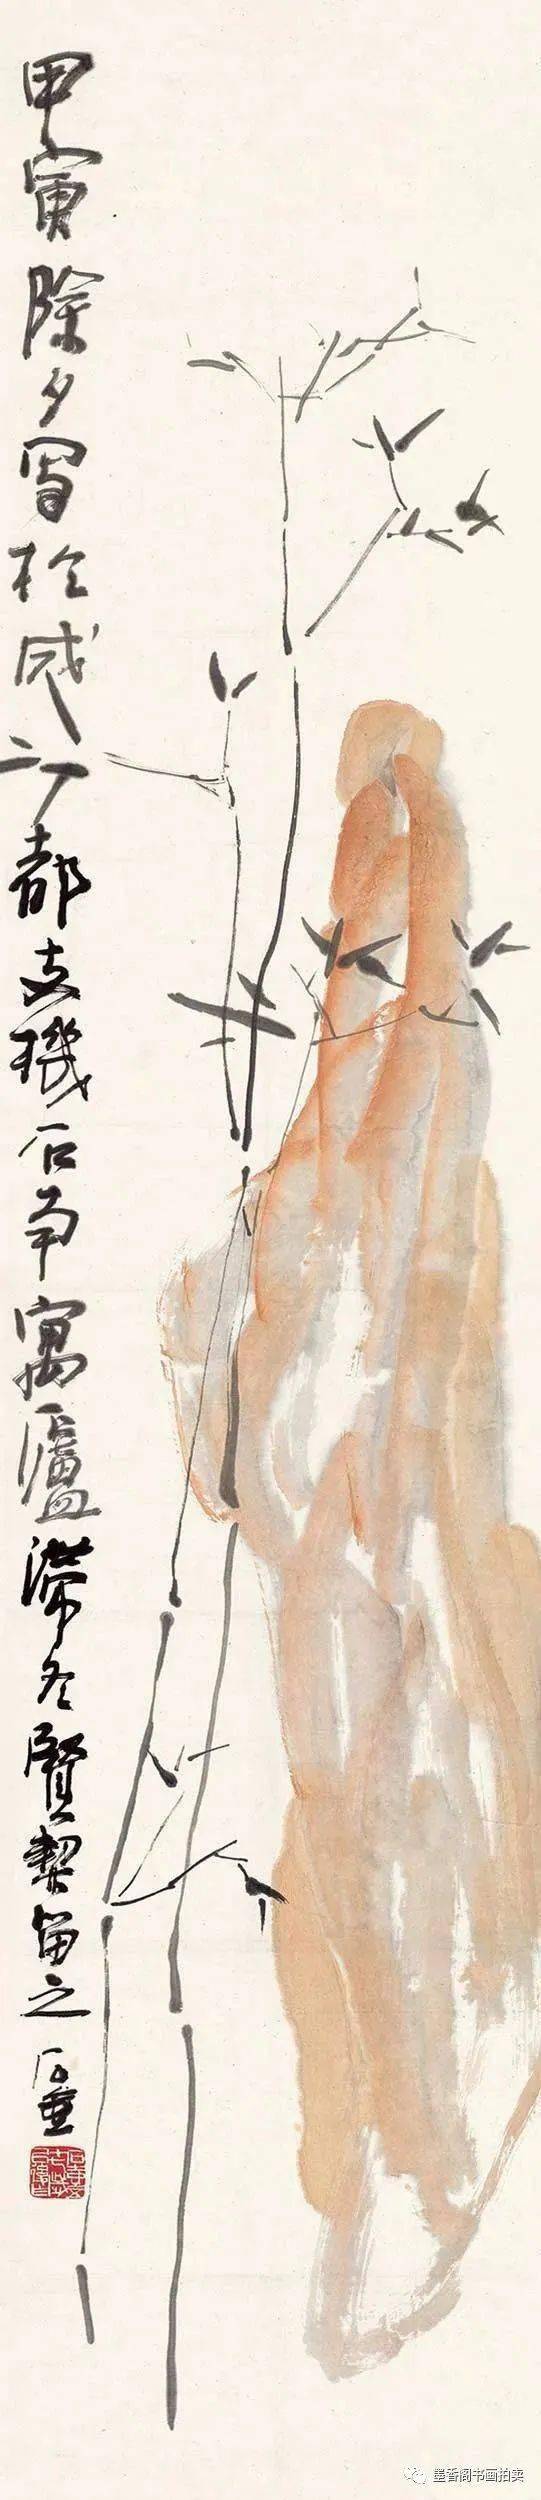 甲寅除夕写於成都支機石南寓廬滞冬賢契留之石壶
墨香阁书画拍卖